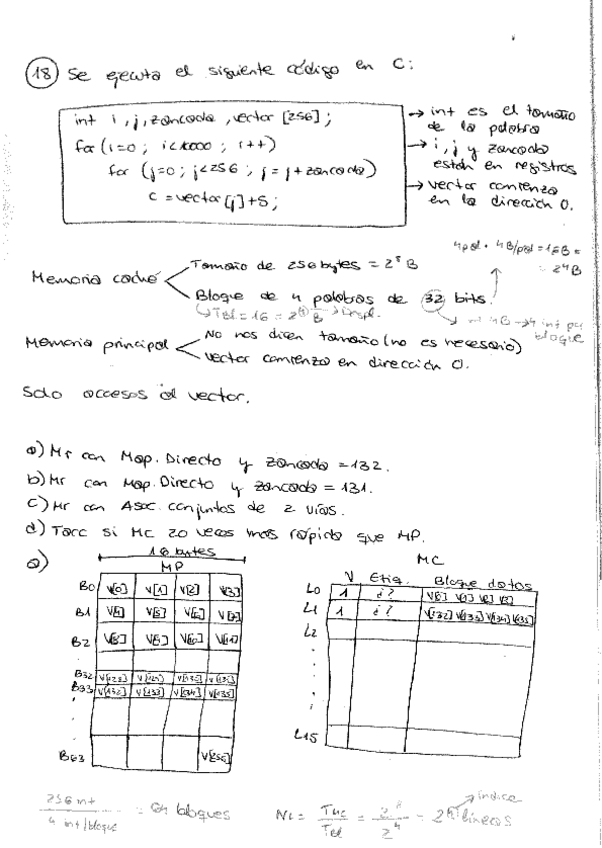 18 Se ejecuta el siguiente código en C:
int i, j, zancada, vector [256];
for (i=0; i<1000; i++)
for (j=0; j<256; j=j+zancada)
c = vector[j]+5;
→ int es el tamaño
de la palabra
→ i, j y zancada
están en registros
→ vector comienza
en la dirección 0.
4pal · 4B/pal = 16B =
= 2⁴B
Memoria caché
Tamaño de 256 bytes = 2⁸ B
Bloque de 4 palabras de 32 bits.
Tbl = 16 = 2⁴ B → Despl.
4B → 4 int por
bloque
Memoria principal
No nos dicen tamaño (no es necesario)
Vector comienza en dirección 0.
Solo accesos al vector.
a) Mr con Map. Directo y zancada = 132.
b) Mr con Map. Directo y zancada = 131.
c) Mr con Asoc. conjuntos de 2 vías.
d) Tacc si MC 20 veces más rápido que MP.
a)
16 bytes
MP
B0 V[0] V[1] V[2] V[3]
B1
B2
B32
B33 V[132] V[133] V[134] V[135]
B63 V[256]
MC
V Etiq. Bloque datos
L0 1 ¿? V[0] V[1] V[2] V[3]
L1 1 ¿? V[132] V[133] V[134] V[135]
L2
L15
256 int / 4 int/bloque = 64 bloques
NL = Tmc / Tbl = 2⁸ / 2⁴ = 2⁴ líneas
índice